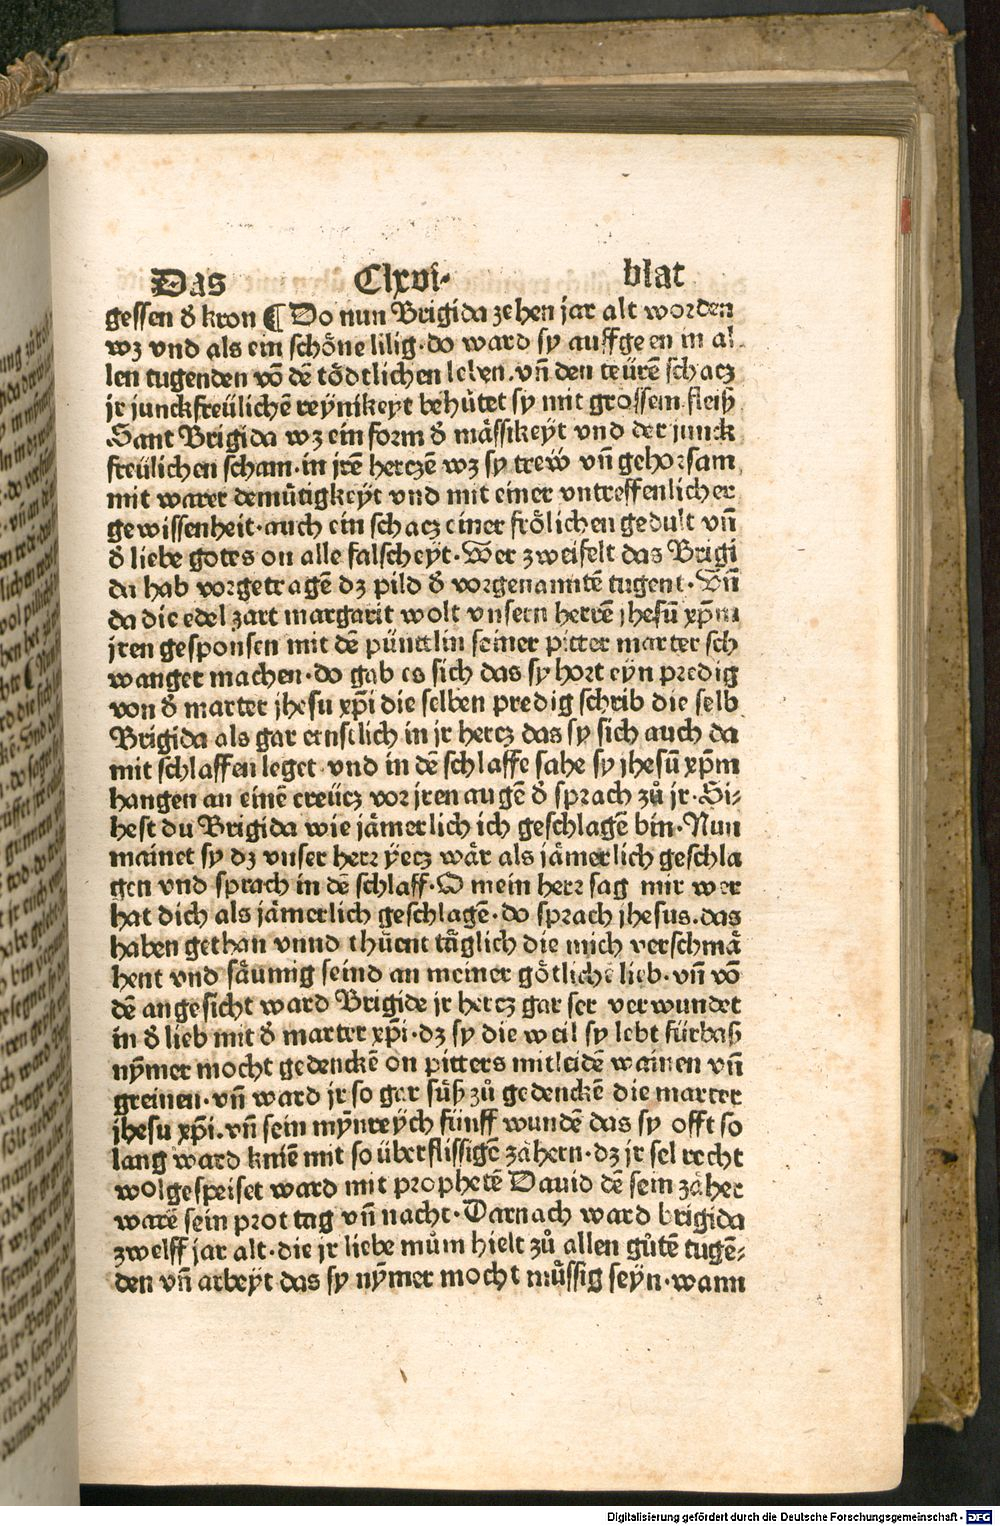 Das Clxvi· blat
gessen d̕ kron ¶ Do nun Brigida zehen jar alt worden
wz vnd als ein schöne lilig·do ward sy auffgeen in al-
len tugenden võ dẽ tödtlichen leben.vñ den teürẽ schacz
jr junckfreülichẽ reynikeyt behůtet sy mit grossem fleiß
Sant Brigida wz ein form d̕ mässikeyt vnd der junck
freülichen scham·in jrẽ herczẽ wz sy trew vñ gehorsam
mit warer demůtigkeyt vnd mit einer vntreffenlicher
gewissenheit·auch ein schacz einer frölichen gedult vñ
d̕ liebe gotes on alle falscheyt·Wer zweifelt das Brigi
da hab vorgetragẽ dz pild d̕ vorgenanntẽ tugent·Vñ
da die edel zart margarit wolt vnsern herrẽ jhesũ xp̃m
jren gesponsen mit dẽ pünttlin seiner pitter marter sch
wanger machen·do gab es sich das sy hort eyn predig
von d̕ marter jhesu xp̃i die selben predig schrib die selb
Brigida als gar ernstlich in jr hercz das sy sich auch da
mit schlaffen leget·vnd in dẽ schlaffe sahe sy jhesũ xp̃m
hangen an einẽ creücz vor jren augẽ d̕ sprach zů jr·Si-
hest du Brigida wie jämerlich ich geschlagẽ bin·Nun
mainet sy dz vnser herr yecz wär als jämerlich geschla
gen vnd sprach in dẽ schlaff·O mein herr sag mir wer
hat dich als jämerlich geschlagẽ·do sprach jhesus.das
haben gethan vnnd thůent täglich die mich verschmä
hent vnd säumig seind an meiner götlichẽ lieb·vñ võ
dẽ angesicht ward Brigide jr hercz gar ser verwundet
in d̕ lieb mit d̕ marter xp̃i·dz sy die weil sy lebt fürbaß
nȳmer mocht gedenckẽ on pitters mitleidẽ wainen vñ
greinen·vñ ward jr so gar süß zů gedenckẽ die marter
jhesu xp̃i.vñ sein mȳnreych fünff wundẽ das sy offt so
lang ward kniẽ mit so überflissigẽ zähern·dz jr sel recht
wolgespeiset ward mit prophetẽ Dauid dẽ sein zäher
warẽ sein prot tag vñ nacht·Darnach ward brigida
zwelff jar alt·die jr liebe mům hielt zů allen gůtẽ tugẽ-
den vñ arbeyt das sy nȳmer mocht müssig seyn·wann
Digitalisierung gefördert durch die Deutsche Forschungsgemeinschaft - DFG